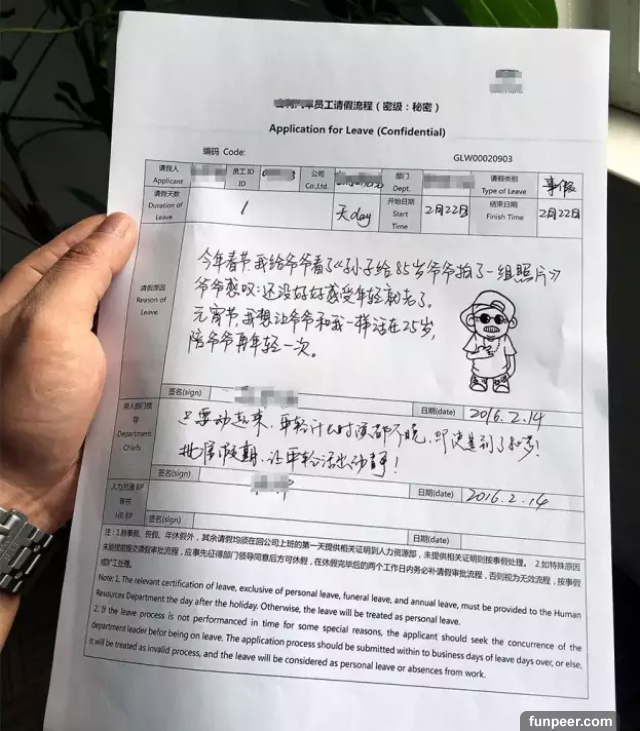 员工请假流程（密级：秘密）
Application for Leave (Confidential)
编码 Code:
GLW00020903
请假人 Applicant
员工 ID ID
公司 Co,Ltd.
部门 Dept.
请假类别 Type of Leave
事假
请假天数 Duration of Leave
1
天day
开始日期 Start Time
2月22日
结束日期 Finish Time
2月22日
请假原因 Reason of Leave
今年春节,我给爷爷看了《孙子给85岁爷爷拍了一组照片》
爷爷感叹:还没好好感受年轻就老了。
元宵节,我想让爷爷和我一样活在25岁,
陪爷爷再年轻一次。
签名(sign)
日期(date)
2016.2.14
部门领导 Department Chiefs
只要动起来,年轻什么时候都不晚,即使是到了80岁!
批准假期,让年轻活出动静!
签名(sign)
日期(date)
2016.2.14
人力资源 BP 审核 HR BP
签名(sign)
日期(date)
注：1.除事假、丧假、年休假外，其余请假均须在回公司上班的第一天提供相关证明到人力资源部，未提供相关证明则按事假处理。2.如特殊原因
未能按照提交请假审批流程，应事先征得部门领导同意后方可休假，在休假完毕后的两个工作日内务必补请假审批流程，否则视为无效流程，按事假
或旷工处理。
Note: 1. The relevant certification of leave, exclusive of personal leave, funeral leave, and annual leave, must be provided to the Human
Resources Department the day after the holiday. Otherwise, the leave will be treated as personal leave.
2. If the leave process is not performanced in time for some special reasons, the applicant should seek the concurrence of the
department leader befor being on leave. The application process should be submitted within to business days of leave days over, or else,
it will be treated as invalid process, and the leave will be considered as personal leave or absences from work.
funpeer.com